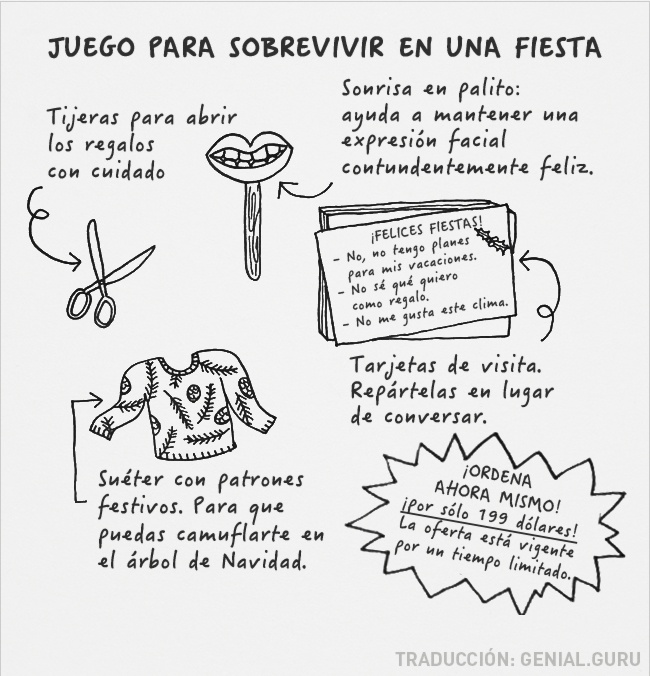 JUEGO PARA SOBREVIVIR EN UNA FIESTA
Tijeras para abrir
los regalos
con cuidado
Sonrisa en palito:
ayuda a mantener una
expresión facial
contundentemente feliz.
¡FELICES FIESTAS!
- No, no tengo planes
para mis vacaciones.
- No sé qué quiero
como regalo.
- No me gusta este clima.
Tarjetas de visita.
Repártelas en lugar
de conversar.
Suéter con patrones
festivos. Para que
puedas camuflarte en
el árbol de Navidad.
¡ORDENA
AHORA MISMO!
¡Por sólo 199 dólares!
La oferta está vigente
por un tiempo limitado.
TRADUCCIÓN: GENIAL.GURU